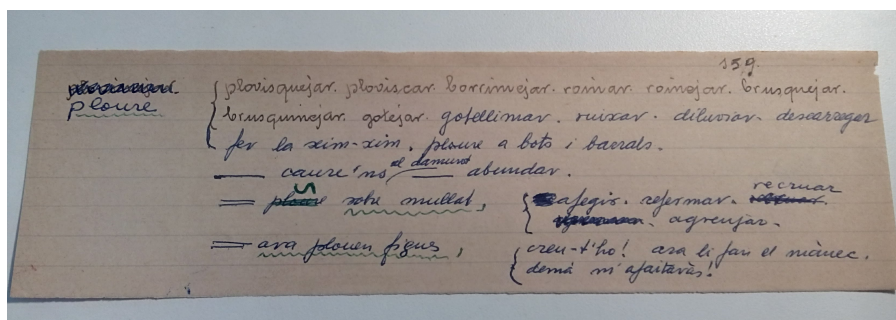 159.
ploure { plovisquejar. ploviscar. borrimejar. roinar. roinejar. brusquejar.
brusquinejar. gotejar. gotellimar. ruixar. diluviar. descarregar
fer la xim-xim. ploure a bots i barrals.
— caure'ns al damunt — abundar.
= ploure sobre mullat, { afegir. refermar. recruar
agreujar.
= ara plouen figues, { creu-t'ho! ara li fan el mànec.
demà m'afaitaràs!